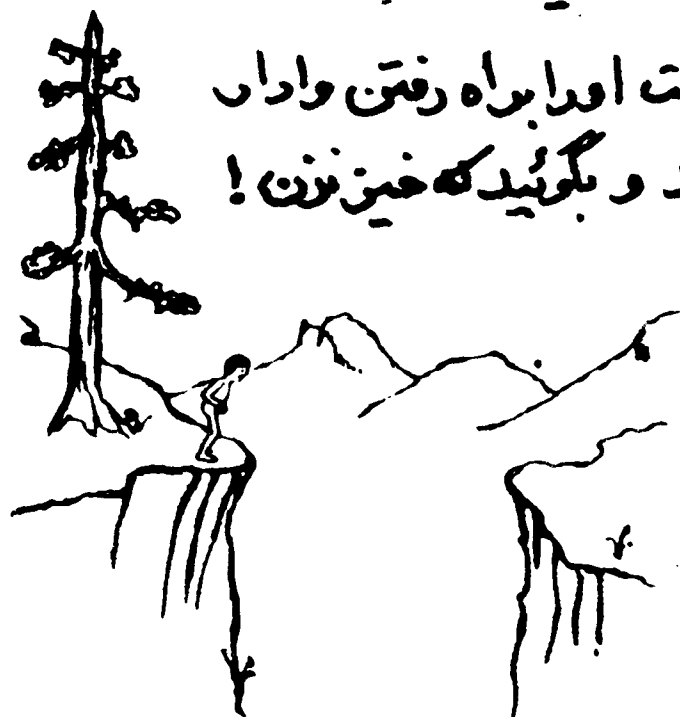 اورا براه رفتن وادار
و بگوئید که خیز بزن !